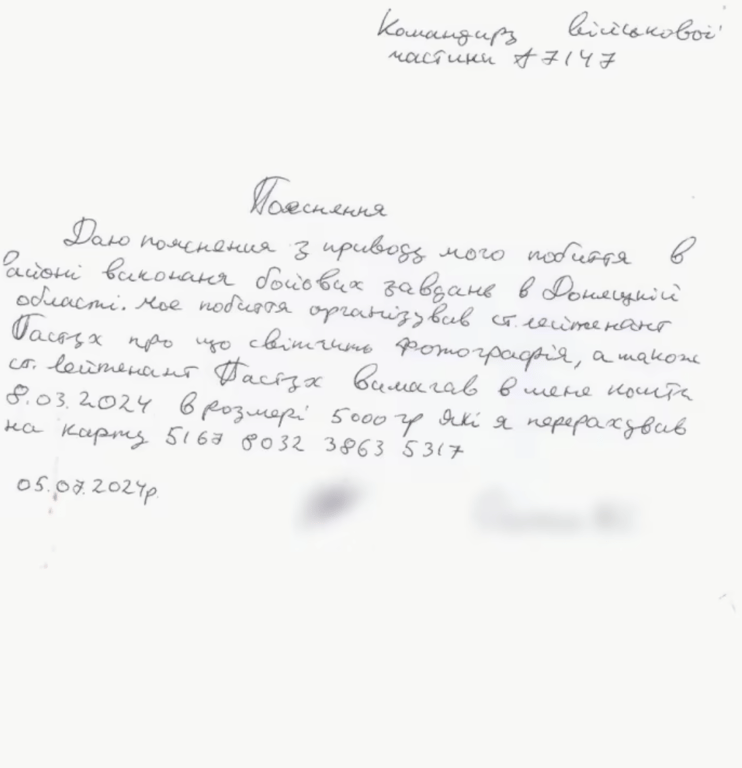 Командиру військової
частини А7147
Пояснення
Даю пояснення з приводу мого побиття в
районі виконаня бойових завдань в Донецькій
області. Моє побиття організував ст. лейтенант
Пастух про що світчить фотографія, а також
ст. лейтенант Пастух вимагав в мене кошти
8.03.2024 в розмері 5000 гр які я перерахував
на карту 5167 8032 3863 5317
05.07.2024р.